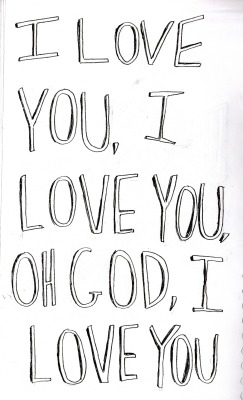 I LOVE
YOU, I
LOVE YOU,
OH GOD, I
LOVE YOU